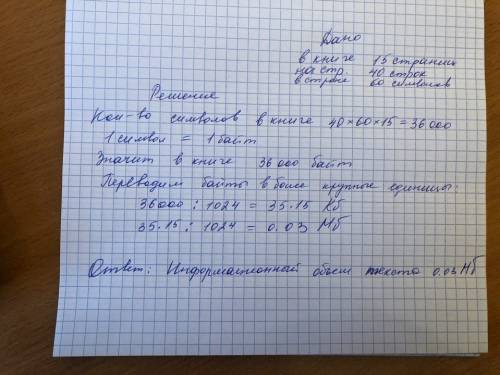 Дано
в книге 15 страниц
на стр. 40 строк
в строке 60 символов
Решение
Кол-во символов в книге 40×60×15=36000
1 символ = 1 байт
Значит в книге 36000 байт
Переводим байты в более крупные единицы:
36000 : 1024 = 35.15 Кб
35.15 : 1024 = 0.03 Мб
Ответ: Информационный объем текста 0.03 Мб